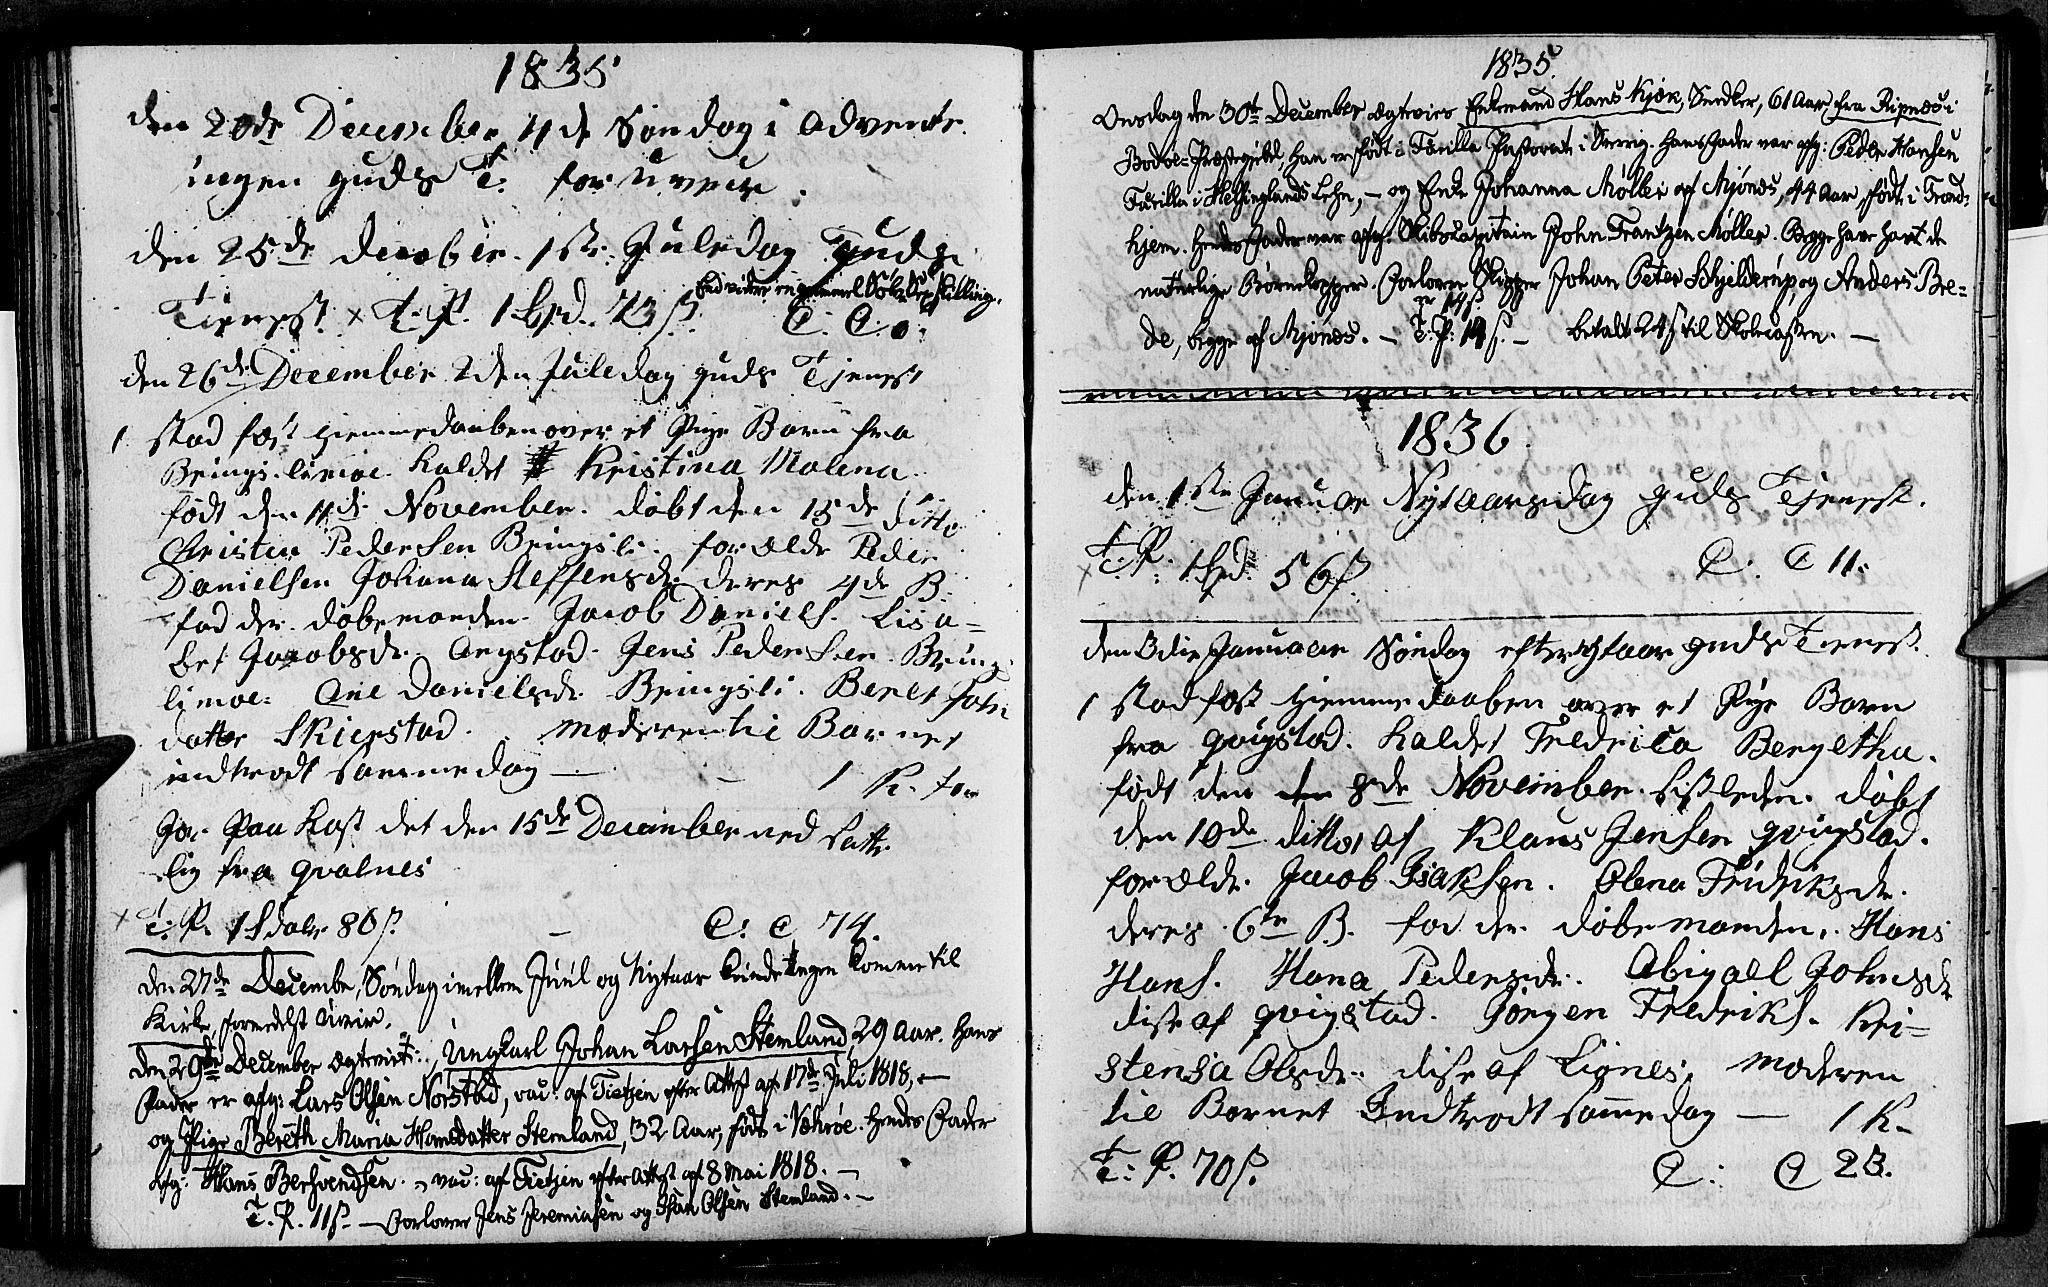 1835
den 20de December 4de Søndag i Advents
ingen guds T: for uveir.
den 25de december. 1ste Juledag Guds
Tienest. x T. P. 1 Spd. 73 s. C. C 0:
End videre en gammel Sølv Skilling.
den 26de December 2den Juledag guds Tjenest
1 stad fæst hiemmedaaben over et Pige Barn fra
Bringslimoe kaldet Kristina Malena
født den 11de November. døbt den 15de ditto
Christen Pedersen Bringsli. forældr Peder
Danielsen Johana Steffensdr deres 4de B.
fad der. døbemanden. Jacob Daniels. Lisa-
bet Jacobsdr. Aagstad. Jens Pedersen. Brings
limoe. Ane Danielsdr. Bringsli. Beret John
datter Skierstad. moderen til Barnet
indtrodt samme dag — 1 K. to
Jor Paa kast det den 15de December ned satte
lig fra qvalnes
x T. P. 1 Spdaler 86 s. — C: C 74.
den 27de Decembe, Søndag imellem Juul og Nytaar kunde Ingen komme til
Kirke, formedelst Uveir.
den 29de December Ægteviet: Ungkarl Johan Larsen Stemland, 29 Aar. hans
Fader er afg: Lars Olsen Norstad, vac: af Tietjen efter Attest af 17de Juli 1818, —
og Pige Bereth Maria Hansdatter Stemland, 32 Aar, født i Nehrøe. Hendes Fader
Afg: Hans Bersvendsen. — vac: af Tietjen efter Attest af 8 Mai 1818. —
T. P. 11 s — Forlover Jens Jeremiasen og Johan Olsen Stemland. —
1835.
Onsdag den 30te December Ægtevies Enkemand Hans Kjøk, Snedker, 61 Aar fra Ripnæs i
Bodøe-Præstegjeld, han er født i Færilla Pastorat i Sverrig. Hans Fader var afg: Peder Hansen
Færilla i Helsinglands Lehn, — og Enke Johanna Møller af Mjønæs, 44 Aar, født i Trond-
hjem. Hendes Fader var afg: Skibscapitain John Frantzen Møller. Begge have havt de
naturlige Børnekopper. Forlovere Skipper Johan Peter Schjelderup, og Anders Bre-
de, begge af Mjønæs. — T: P: 14 s. — betalt 24 s til Skolecassen. —
1836
den 1ste Januar Nytaarsdag guds Tjenest.
x T. P. 1 Spd. 56 s. C. C 11:
den 3die Januaar Søndag efter nytaar guds Tienest
1 stad fæst hiemme daaben over et Pige Barn
fra qvigstad. kaldet Fredrica Bergetha.
født den 8de November. sistleden. døbt
den 10de ditto af Klaus Jensen qvigstad.
forældr. Jacob Isaksen. Olena Fridriksdr.
deres 6te B. fad der. døbemanden. Hans
Hans. Hana Pedersdr. Abigael Johnsdr
disse af qvigstad. Jørgen Fredriks. Kri-
stensa Olsdr. disse af Lignes. moderen
til Barnet Indtrodt samme dag — 1 K.
x T: P. 70 s. C: C 23.